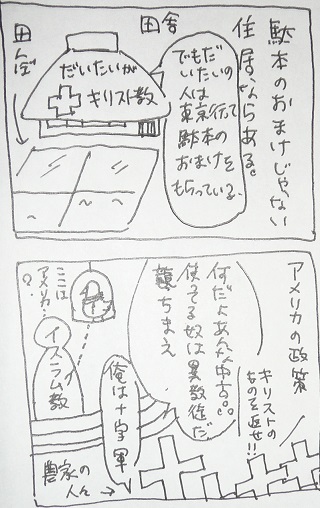 駄本のおまけじゃない
住居ならある。
田舎
でもだ
いたいの
人は
東京行て
駄本の
おまけを
もらっている。
だいたいが
キリスト数
田んぼ
アメリカの政策
キリストの
ものを返せ!!
何だよあんな中古。。
使ってる奴は異数徒だ
襲ちまえ
ここは
アメリカ…
?
イスラム数
俺は十字軍
農家の
人々→